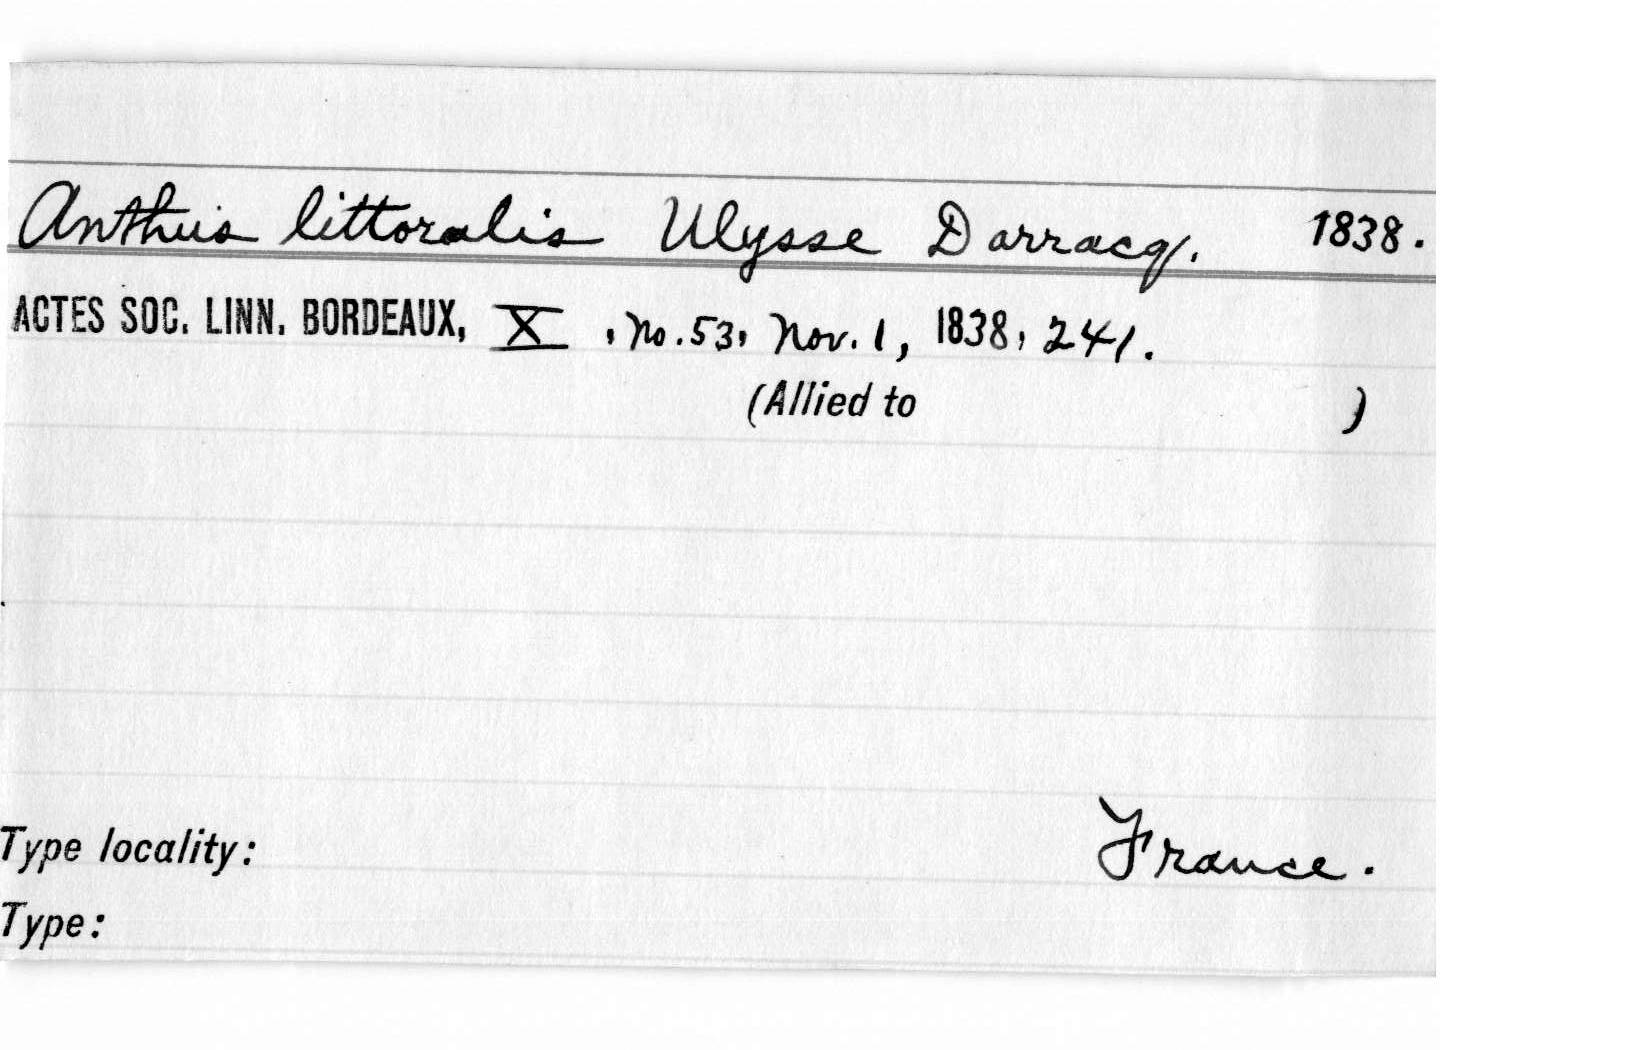 Anthus littoralis Ulysse Darracq. 1838.
ACTES SOC. LINN. BORDEAUX, X, No. 53, Nov. 1, 1838, 241.
(Allied to )
France.
Type locality:
Type: